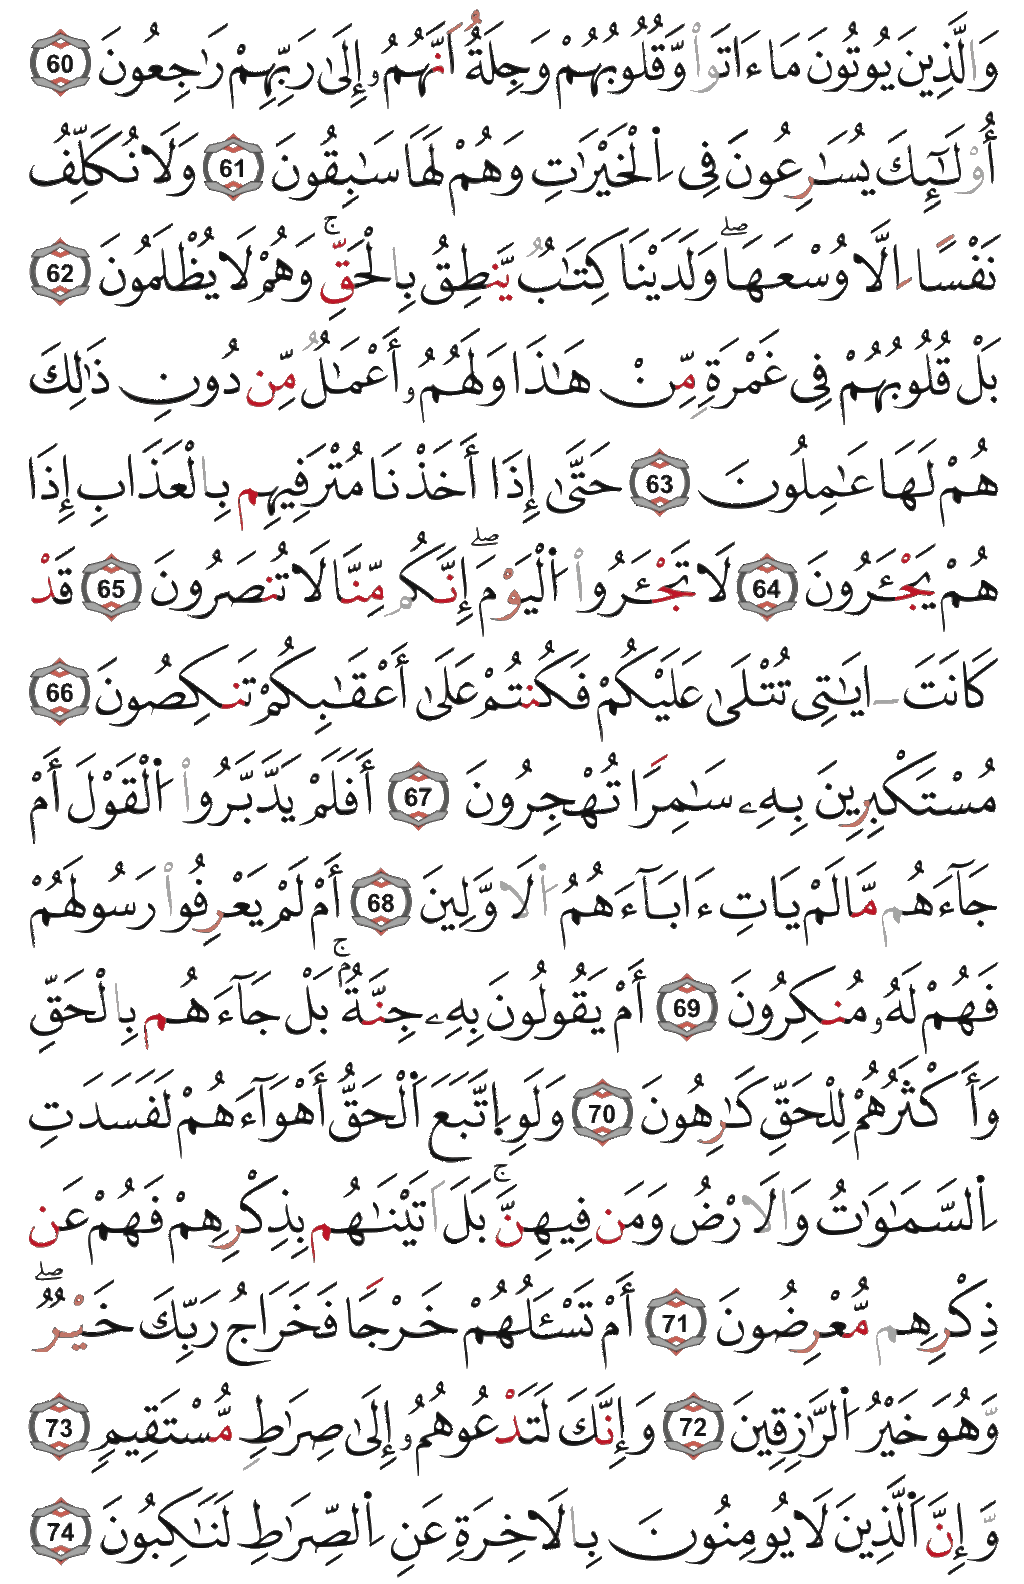 وَالَّذِينَ يُوتُونَ مَا ءَاتَوا۟ وَّقُلُوبُهُمْ وَجِلَةٌ اَنَّهُمُۥٓ إِلَىٰ رَبِّهِمْ رَٰجِعُونَ 60
أُوْلَٰٓئِكَ يُسَٰرِعُونَ فِى اِ۬لْخَيْرَٰتِ وَهُمْ لَهَا سَٰبِقُونَ 61 وَلَا نُكَلِّفُ
نَفْسًا اِلَّا وُسْعَهَاۖ وَلَدَيْنَا كِتَٰبٌ يَّنطِقُ بِالْحَقِّۚ وَهُمْ لَا يُظْلَمُونَ 62
بَلْ قُلُوبُهُمْ فِى غَمْرَةٍ مِّنْ هَٰذَا وَلَهُمُۥٓ أَعْمَٰلٌ مِّن دُونِ ذَٰلِكَ
هُمْ لَهَا عَٰمِلُونَ 63 حَتَّىٰ إِذَا أَخَذْنَا مُتْرَفِيهِم بِالْعَذَابِ إِذَا
هُمْ يَجْـَٔرُونَ 64 لَا تَجْـَٔرُوا۟ اُ۬لْيَوْمَۖ إِنَّكُم مِّنَّا لَا تُنصَرُونَ 65 قَدْ
كَانَتَ ـ ايَٰتِى تُتْلَىٰ عَلَيْكُمْ فَكُنتُمْ عَلَىٰ أَعْقَٰبِكُمْ تَنكِصُونَ 66
مُسْتَكْبِرِينَ بِهِۦ سَٰمِرًا تُهْجِرُونَ 67 أَفَلَمْ يَدَّبَّرُوا۟ اُ۬لْقَوْلَ أَمْ
جَآءَهُم مَّا لَمْ يَاتِ ءَابَآءَهُمُ اُ۬لَاوَّلِينَ 68 أَمْ لَمْ يَعْرِفُوا۟ رَسُولَهُمْ
فَهُمْ لَهُۥ مُنكِرُونَ 69 أَمْ يَقُولُونَ بِهِۦ جِنَّةٌۢۚ بَلْ جَآءَهُم بِالْحَقِّ
وَأَكْثَرُهُمْ لِلْحَقِّ كَٰرِهُونَ 70 وَلَوِ اِ۪تَّبَعَ اَ۬لْحَقُّ أَهْوَآءَهُمْ لَفَسَدَتِ
اِ۬لسَّمَٰوَٰتُ وَالَارْضُ وَمَن فِيهِنَّۚ بَلَ اتَيْنَٰهُم بِذِكْرِهِمْ فَهُمْ عَن
ذِكْرِهِم مُّعْرِضُونَ 71 أَمْ تَسْـَٔلُهُمْ خَرْجًا فَخَرَاجُ رَبِّكَ خَيْرٌۖ
وَّهُوَ خَيْرُ اُ۬لرَّٰزِقِينَ 72 وَإِنَّكَ لَتَدْعُوهُمُۥٓ إِلَىٰ صِرَٰطٍ مُّسْتَقِيمٍ 73
وَّإِنَّ اَ۬لَّذِينَ لَا يُومِنُونَ بِالَاخِرَةِ عَنِ اِ۬لصِّرَٰطِ لَنَٰكِبُونَ 74